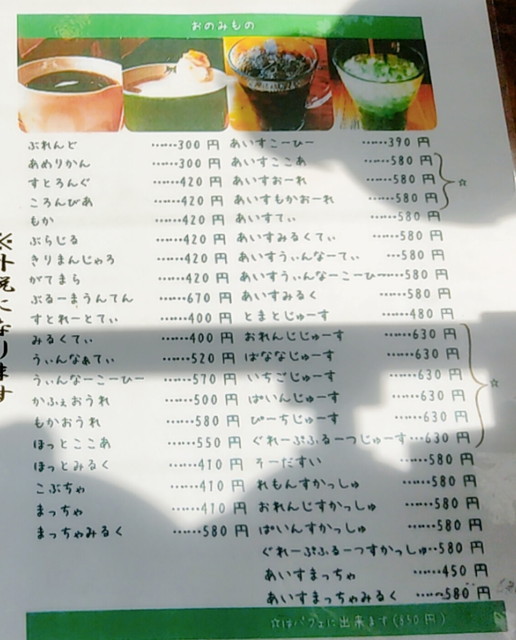 おのみもの
ぶれんど ……300 円
あめりかん ……300 円
すとろんぐ ……420 円
ころんびあ ……420 円
もか ……420 円
ぶらじる ……420 円
きりまんじゃろ ……420 円
がてまら ……420 円
ぶるーまうんてん ……670 円
すとれーとてぃ ……400 円
みるくてぃ ……400 円
うぃんなぁてぃ ……520 円
うぃんなーこーひー ……570 円
かふぇおうれ ……500 円
もかおうれ ……580 円
ほっとここあ ……550 円
ほっとみるく ……410 円
こぶちゃ ……410 円
まっちゃ ……410 円
まっちゃみるく ……580 円
あいすこーひー ……390 円
あいすここあ ……580 円
あいすおーれ ……580 円
あいすもかおーれ ……580 円
☆
あいすてぃ ……580 円
あいすみるくてぃ ……580 円
あいすうぃんなーてぃ …580 円
あいすうぃんなーこーひー……580 円
あいすみるく ……580 円
とまとじゅーす ……480 円
おれんじじゅーす ……630 円
ばななじゅーす ……630 円
いちごじゅーす ……630 円
ぱいんじゅーす ……630 円
ぴーちじゅーす ……630 円
ぐれーぷふるーつじゅーす…630 円
☆
そーだすい ……580 円
れもんすかっしゅ ……580 円
おれんじすかっしゅ ……580 円
ぱいんすかっしゅ ……580 円
ぐれーぷふるーつすかっしゅ…580 円
あいすまっちゃ ……450 円
あいすまっちゃみるく ……580 円
☆はパフェに出来ます(850 円)
※外税になります